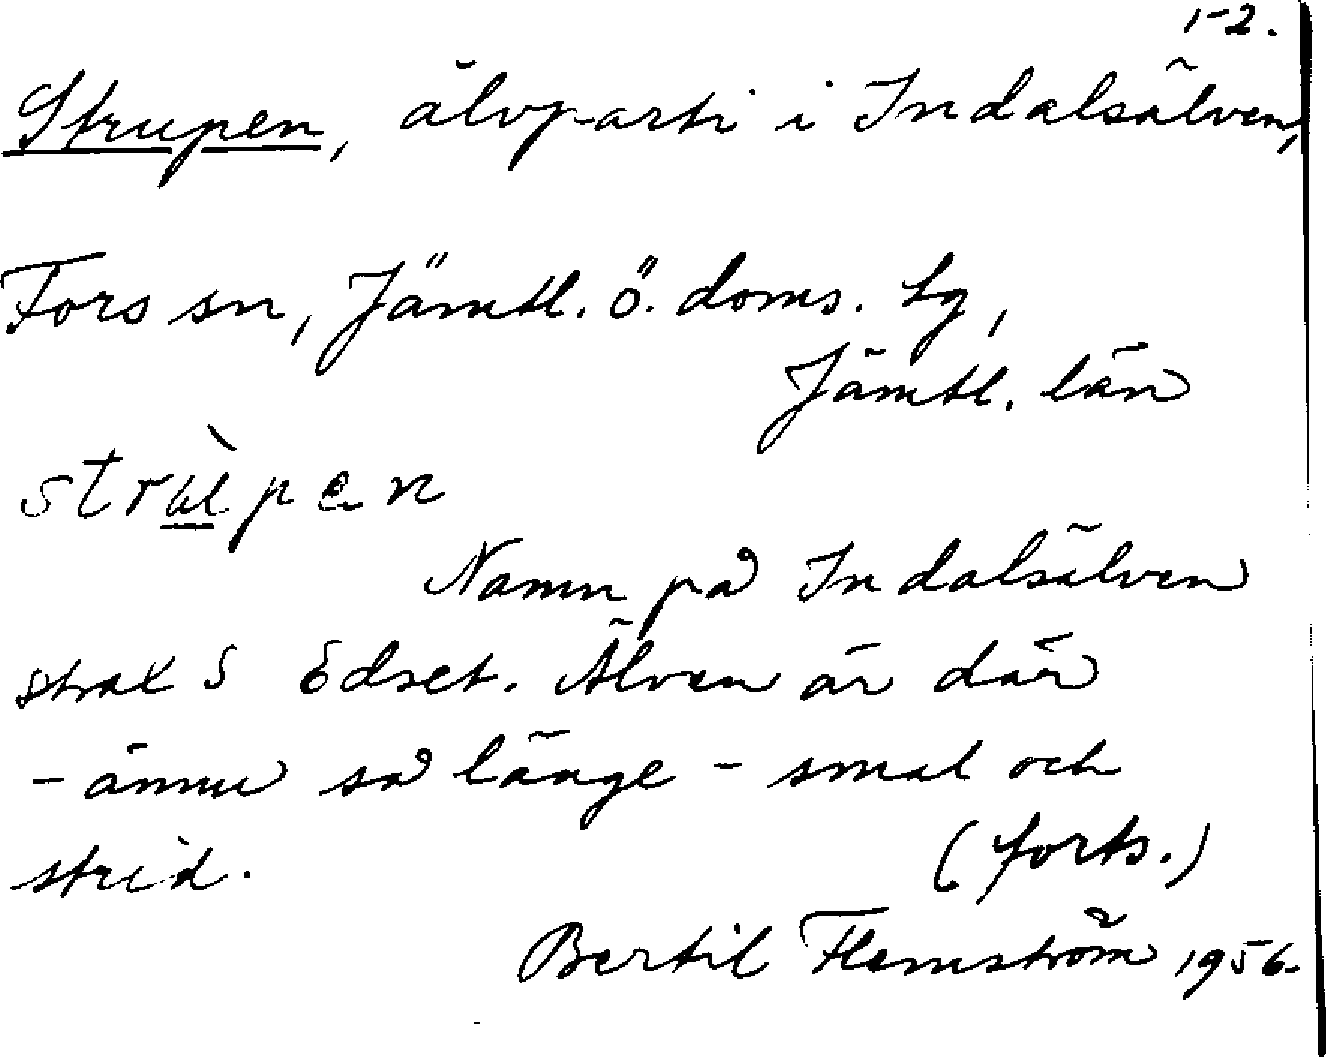 1-2.
Strupen, älvparti i Indalsälven,
Fors sn, Jämtl. ö. doms. tg,
Jämtl. län
strùpen
Namn på Indalsälven
strax S Edset. Älven är där
- ännu så länge - smal och
strid. (forts.)
Bertil Flemström 1956.